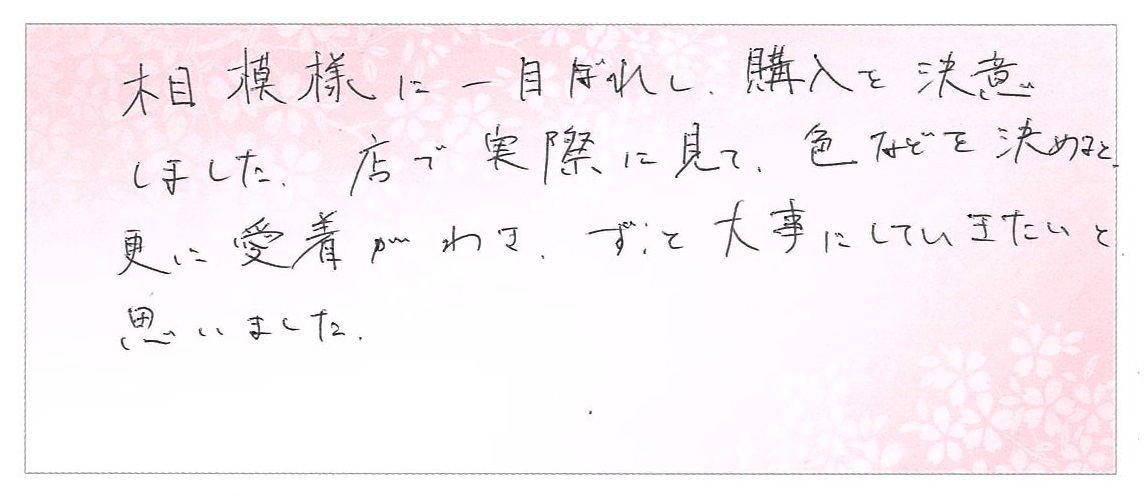 木目模様に一目ぼれし、購入を決意
しました。店で実際に見て、色などを決めると、
更に愛着がわき、ずっと大事にしていきたいと
思いました。